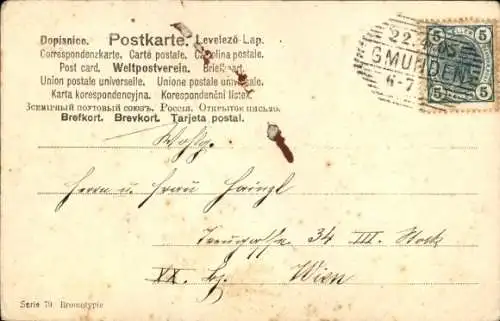 Dopisnice. Postkarte. Levelező-Lap.
Correspondenzkarte. Carté postale. Cartolina postale.
Post card. Weltpostverein. Briefkaart.
Union postale universelle. Unione postale universale.
Karta korespondencyjna. Korespondenční listek.
Всемірный почтовый союзъ. Россія. Открытое письмо.
Brefkort. Brevkort. Tarjeta postal.
5 5
22.
GMUNDEN
6-7
5 5
Herrn u. Frau Haingl
34 III. Stock
XX. Bz. Wien
Serie 79. Bromotypie